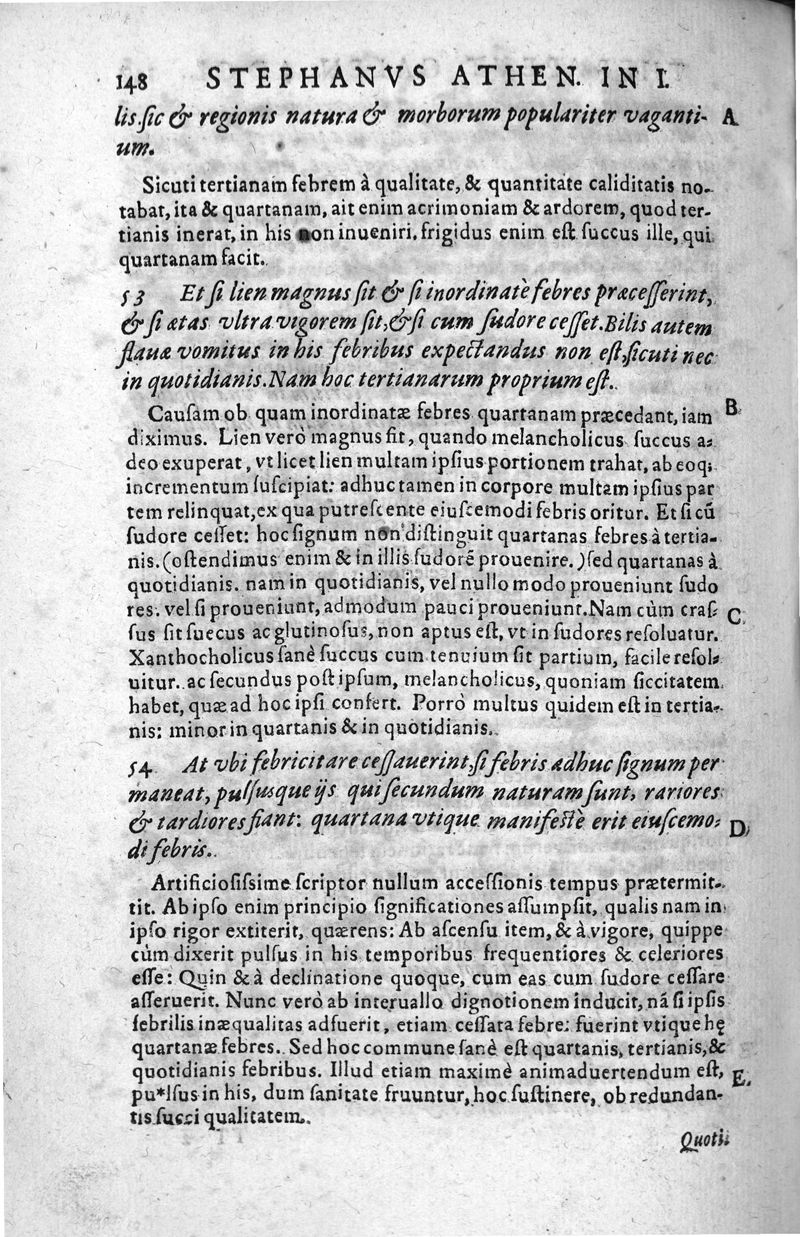 148 STEPHANVS ATHEN. IN I.
lis. ſic & regionis natura & morborum populariter vaganti- A
um.
Sicuti tertianam febrem à qualitate, & quantitate caliditatis no-
tabat, ita & quartanam, ait enim acrimoniam & ardorem, quod ter-
tianis inerat, in his non inueniri. frigidus enim eſt ſuccus ille, qui
quartanam facit.
53 Et ſi lien magnus ſit & ſi inordinatè febres præceſſerint,
& ſi ætas vltra vigorem ſit, & ſi cum ſudore ceſſet. Bilis autem
flauæ vomitus in his febribus expectandus non eſt, ſicuti nec
in quotidianis. Nam hoc tertianarum proprium eſt.
Cauſam ob quam inordinatæ febres quartanam præcedant, iam B
diximus. Lien verò magnus fit, quando melancholicus ſuccus a-
deo exuperat, vt licet lien multam ipſius portionem trahat, ab eoq;
incrementum ſuſcipiat: adhuc tamen in corpore multam ipſius par
tem relinquat, ex qua putreſcente eiuſcemodi febris oritur. Et ſi cũ
ſudore ceſſet: hoc ſignum non diſtinguit quartanas febres à tertia-
nis. (oſtendimus enim & in illis ſudorẽ prouenire.) ſed quartanas à
quotidianis. nam in quotidianis, vel nullo modo proueniunt ſudo
res. vel ſi proueniunt, admodum pauci proueniunt. Nam cùm craſ- C
ſus ſit ſuecus ac glutinoſus, non aptus eſt, vt in ſudores reſoluatur.
Xanthocholicus ſanè ſuccus cum tenuium ſit partium, facile reſol-
uitur. ac ſecundus poſt ipſum, melancholicus, quoniam ſiccitatem
habet, quæ ad hoc ipſi confert. Porrò multus quidem eſt in tertia-
nis: minor in quartanis & in quotidianis.
54 At vbi febricitare ceſſauerint, ſi febris adhuc ſignum per
maneat, pulſusque ijs qui ſecundum naturam ſunt, rariores
& tardiores fiant: quartana vtique manifeſtè erit eiuſcemo- D
di febris.
Artificioſiſsime ſcriptor nullum acceſſionis tempus prætermit-
tit. Ab ipſo enim principio ſignificationes aſſumpſit, qualis nam in
ipſo rigor extiterit, quærens: Ab aſcenſu item, & à vigore, quippe
cùm dixerit pulſus in his temporibus frequentiores & celeriores
eſſe: Quin & à declinatione quoque, cum eas cum ſudore ceſſare
aſſeruerit. Nunc verò ab interuallo dignotionem inducit, nã ſi ipſis
febrilis inæqualitas adfuerit, etiam ceſſata febre: fuerint vtique hę
quartanæ febres. Sed hoc commune ſanè eſt quartanis, tertianis, &
quotidianis febribus. Illud etiam maximè animaduertendum eſt, E
pu*lſus in his, dum ſanitate fruuntur, hoc ſuſtinere, ob redundan-
tis ſucci qualitatem.
Quoti-